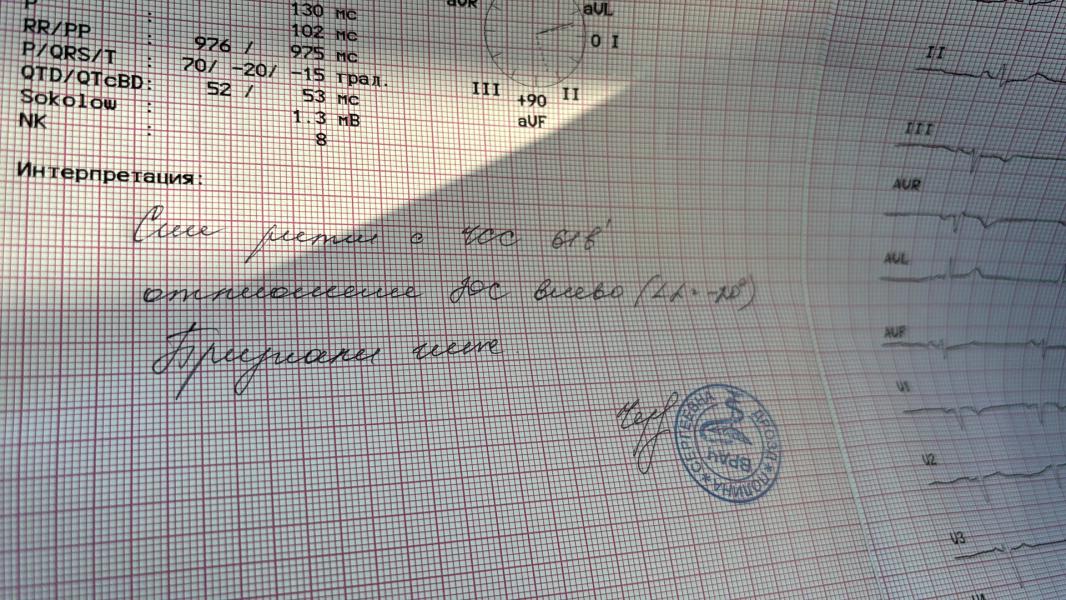 P : 130 мс
102 мс
RR/PP : 976 / 975 мс
P/QRS/T : 70/ -20/ -15 град.
QTD/QTcBD: 52 / 53 мс
Sokolow : 1.3 мВ
NK : 8
aVR
aVL
0 I
III
+90
II
aVF
Интерпретация:
Син ритм с ЧСС 61 в'
отклонение ЭОС влево (∠α = -20°)
Признаки
СЕРГЕЕВНА * ДРОЗД * ПОЛИНА *
ВРАЧ
II
III
AVR
AVL
AVF
V1
V2
V3
V4